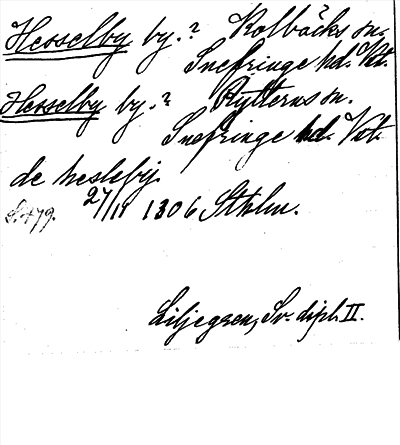 Hesselby by.? Kolbäcks sn.
Snefringe hd. Vst.
Hesselby by.? Rytterns sn.
Snefringe hd. Vst.
de heslebij
S. 479. 27/11 1306 Sthlm.
Liljegren, Sv. dipl. II.